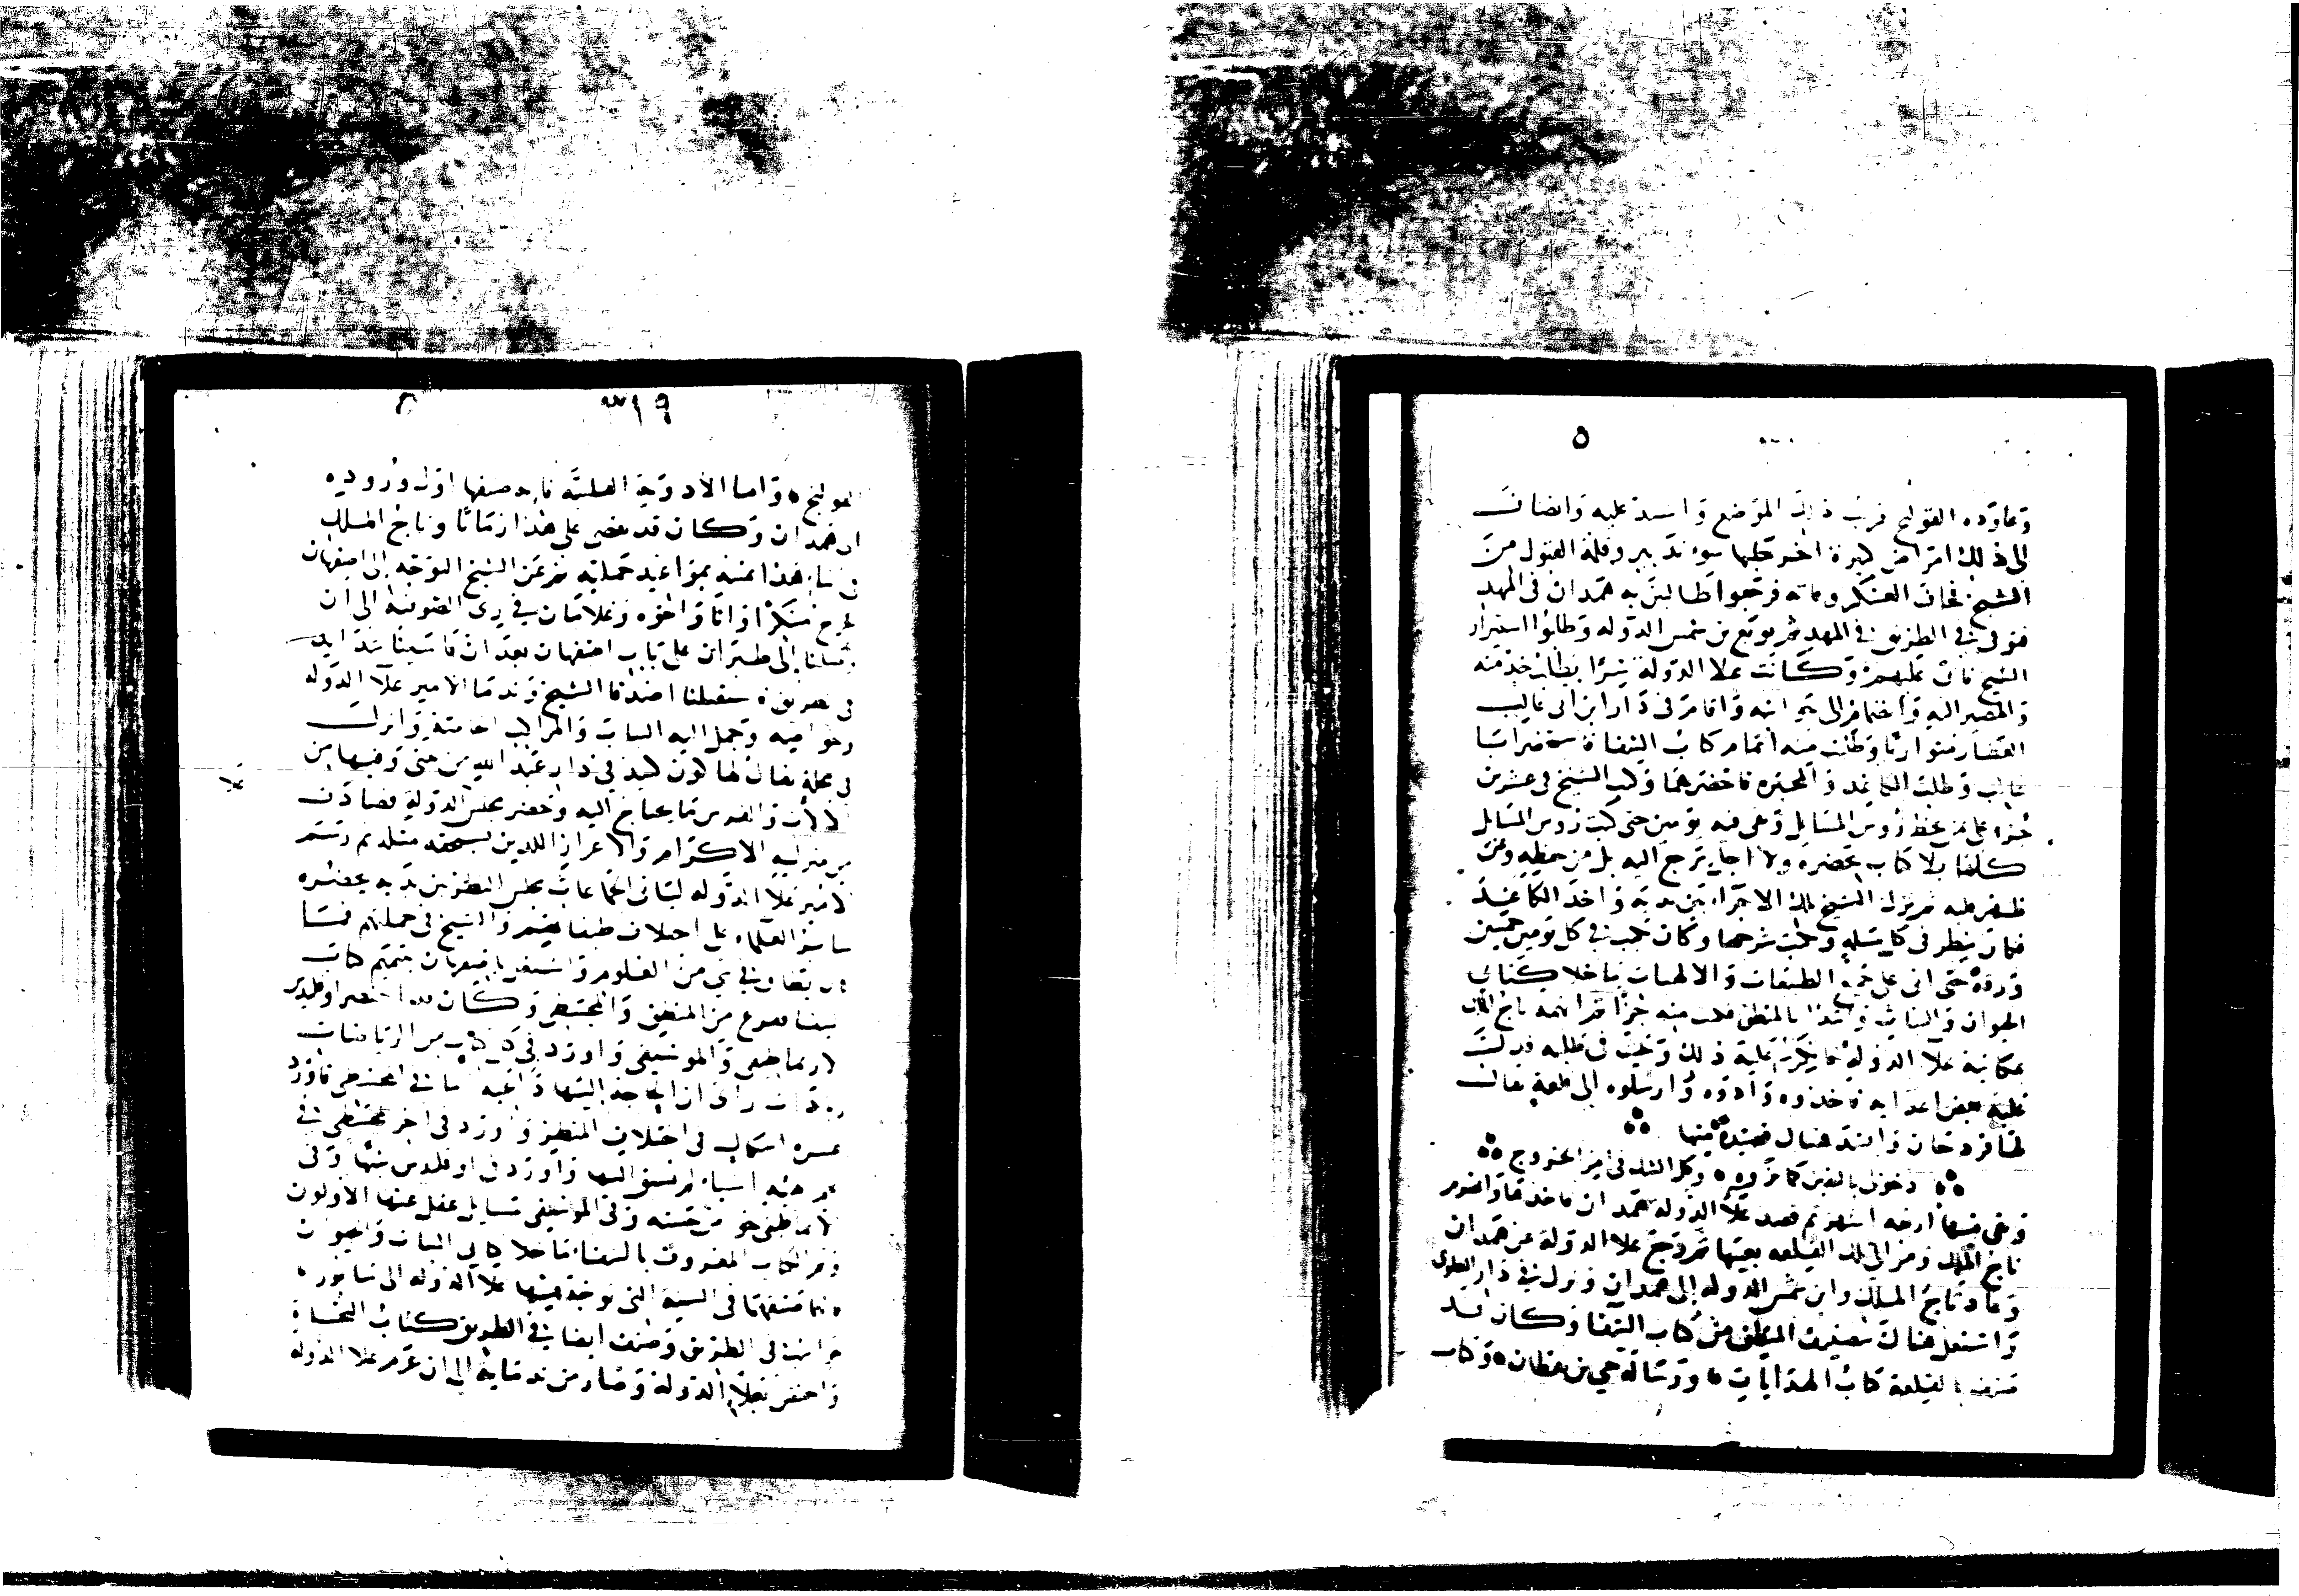 ٥
وعاوده القولنج قرب ذلك الموضع واشتد عليه وانضاف
الى ذلك امراض كثيرة اخر جلبها سوء تدبيره وقلة القبول من
الشيخ فخاف العسكر وفاته فرجعوا طالبين به همدان في المهد
فتوفي في الطريق في المهد ثم بويع بن شمس الدولة وطلبوا استيزار
الشيخ فابى عليهم وكاتب علا الدولة سرا يطلب خدمته
والمصير اليه والانضمام الى جوانبه واقام في دار ابن ابي غالب
العطار متواريا وطلبت منه اتمام كتاب الشفا فاستحضر ابا
غالب وطلب الكاغد والمحبرة فاحضرهما وكتب الشيخ في عشرين
جزءا على بخطه رؤس المسايل وبقي فيه يومين حتى كتب رؤس المسايل
كلها بلا كتاب يحضره ولا اصل يرجع اليه بل من حفظه وعن
ظهر قلبه ثم ترك الشيخ تلك الاجزاء بين يديه واخذ الكاغد
فكان ينظر في كل مسله ويكتب شرحها وكان يكتب في كل يوم خمسين
ورقة حتى اتى على جميع الطبيعات والالهيات ما خلا كتابي
الحيوان والنبات وابتدا بالمنطق وكتب منه جزءا ثم اتهمه تاج الملك
بمكاتبة علا الدولة فانكر عليه ذلك وحث في طلبه فدل
عليه بعض اعدايه فاخذوه وادوه وارسلوه الى قلعة يقال
لها فردجان وانشد هناك قصيدة منها
دخولي باليقين كما تراه وكل الشك في امر الخروج
وبقي فيها اربعة اشهر ثم قصد علا الدولة همدان فاخذها وانهزم
تاج الملك ومر الى تلك القلعه بعينها ثم رجع علا الدولة عن همدان
وعاد تاج الملك وابن شمس الدوله الى همدان ونزل في دار العلوي
واشتغل هناك بتصنيف المنطق من كتاب الشفا وكان قد
صنف بالقلعة كتاب الهدايات ورسالة حي بن يقظان وكتاب
٣١٩
القولنج واما الادوية القلبية فانه صنفها اول وروده
الى همدان وكان قد تقضى على هذا زمان وتاج الملك
في اثناء هذا يمنيه بمواعيد جميلة ثم عن الشيخ التوجه الى اصفهان
فخرج متنكرا وانا واخوه وغلامان في زي الصوفية الى ان
وصلنا الى طبران على باب اصفهان بعد ان قاسينا شدايد
في الطريق فاستقبلنا اصدقا الشيخ وندما الامير علا الدوله
وخواصه وحمل اليه الثياب والمراكب الخاصة وانزل
في محلة يقال لها كون كنبد في دار عبد الله بن بي وفيها من
الالات والفرش ما يحتاج اليه وحضر مجلس الدولة فصادف
من مجلسه الاكرام والاعزاز اللذين يستحقه مثله ثم رسم
الامير علا الدوله ليالي الجمعات مجلس النظر بين يديه بحضره
ساير العلماء على اختلاف طبقاتهم والشيخ في جملتهم فما
كان يطاق في شي من العلوم واشتغل باصفهان بتتميم كتاب
الشفا ففرغ من المنطق والمجسطي وكان قد اختصر اوقليدس
والارثماطيقي والموسيقي واورد في كل كتاب من الرياضيات
زيادات راى ان الحاجة اليها داعية اما في المجسطي فاورد
عشرة اشكال في اختلاف المنظر واورد في اخر المجسطي في
علم الهيئة اشياء لم يسبق اليها واورد في اوقليدس شبها وفي
الارثماطيقي خواص حسنه وفي الموسيقي مسايل غفل عنها الاولون
وتم الكتاب المعروف بالشفا ما خلا كتابي النبات والحيوان
فانه صنفهما في السنة التي توجه فيها علا الدوله الى سابور
خواست في الطريق وصنف ايضا في الطريق كتاب النجاة
واختص بعلا الدولة وصار من ندمايه الى ان عزم علا الدولة